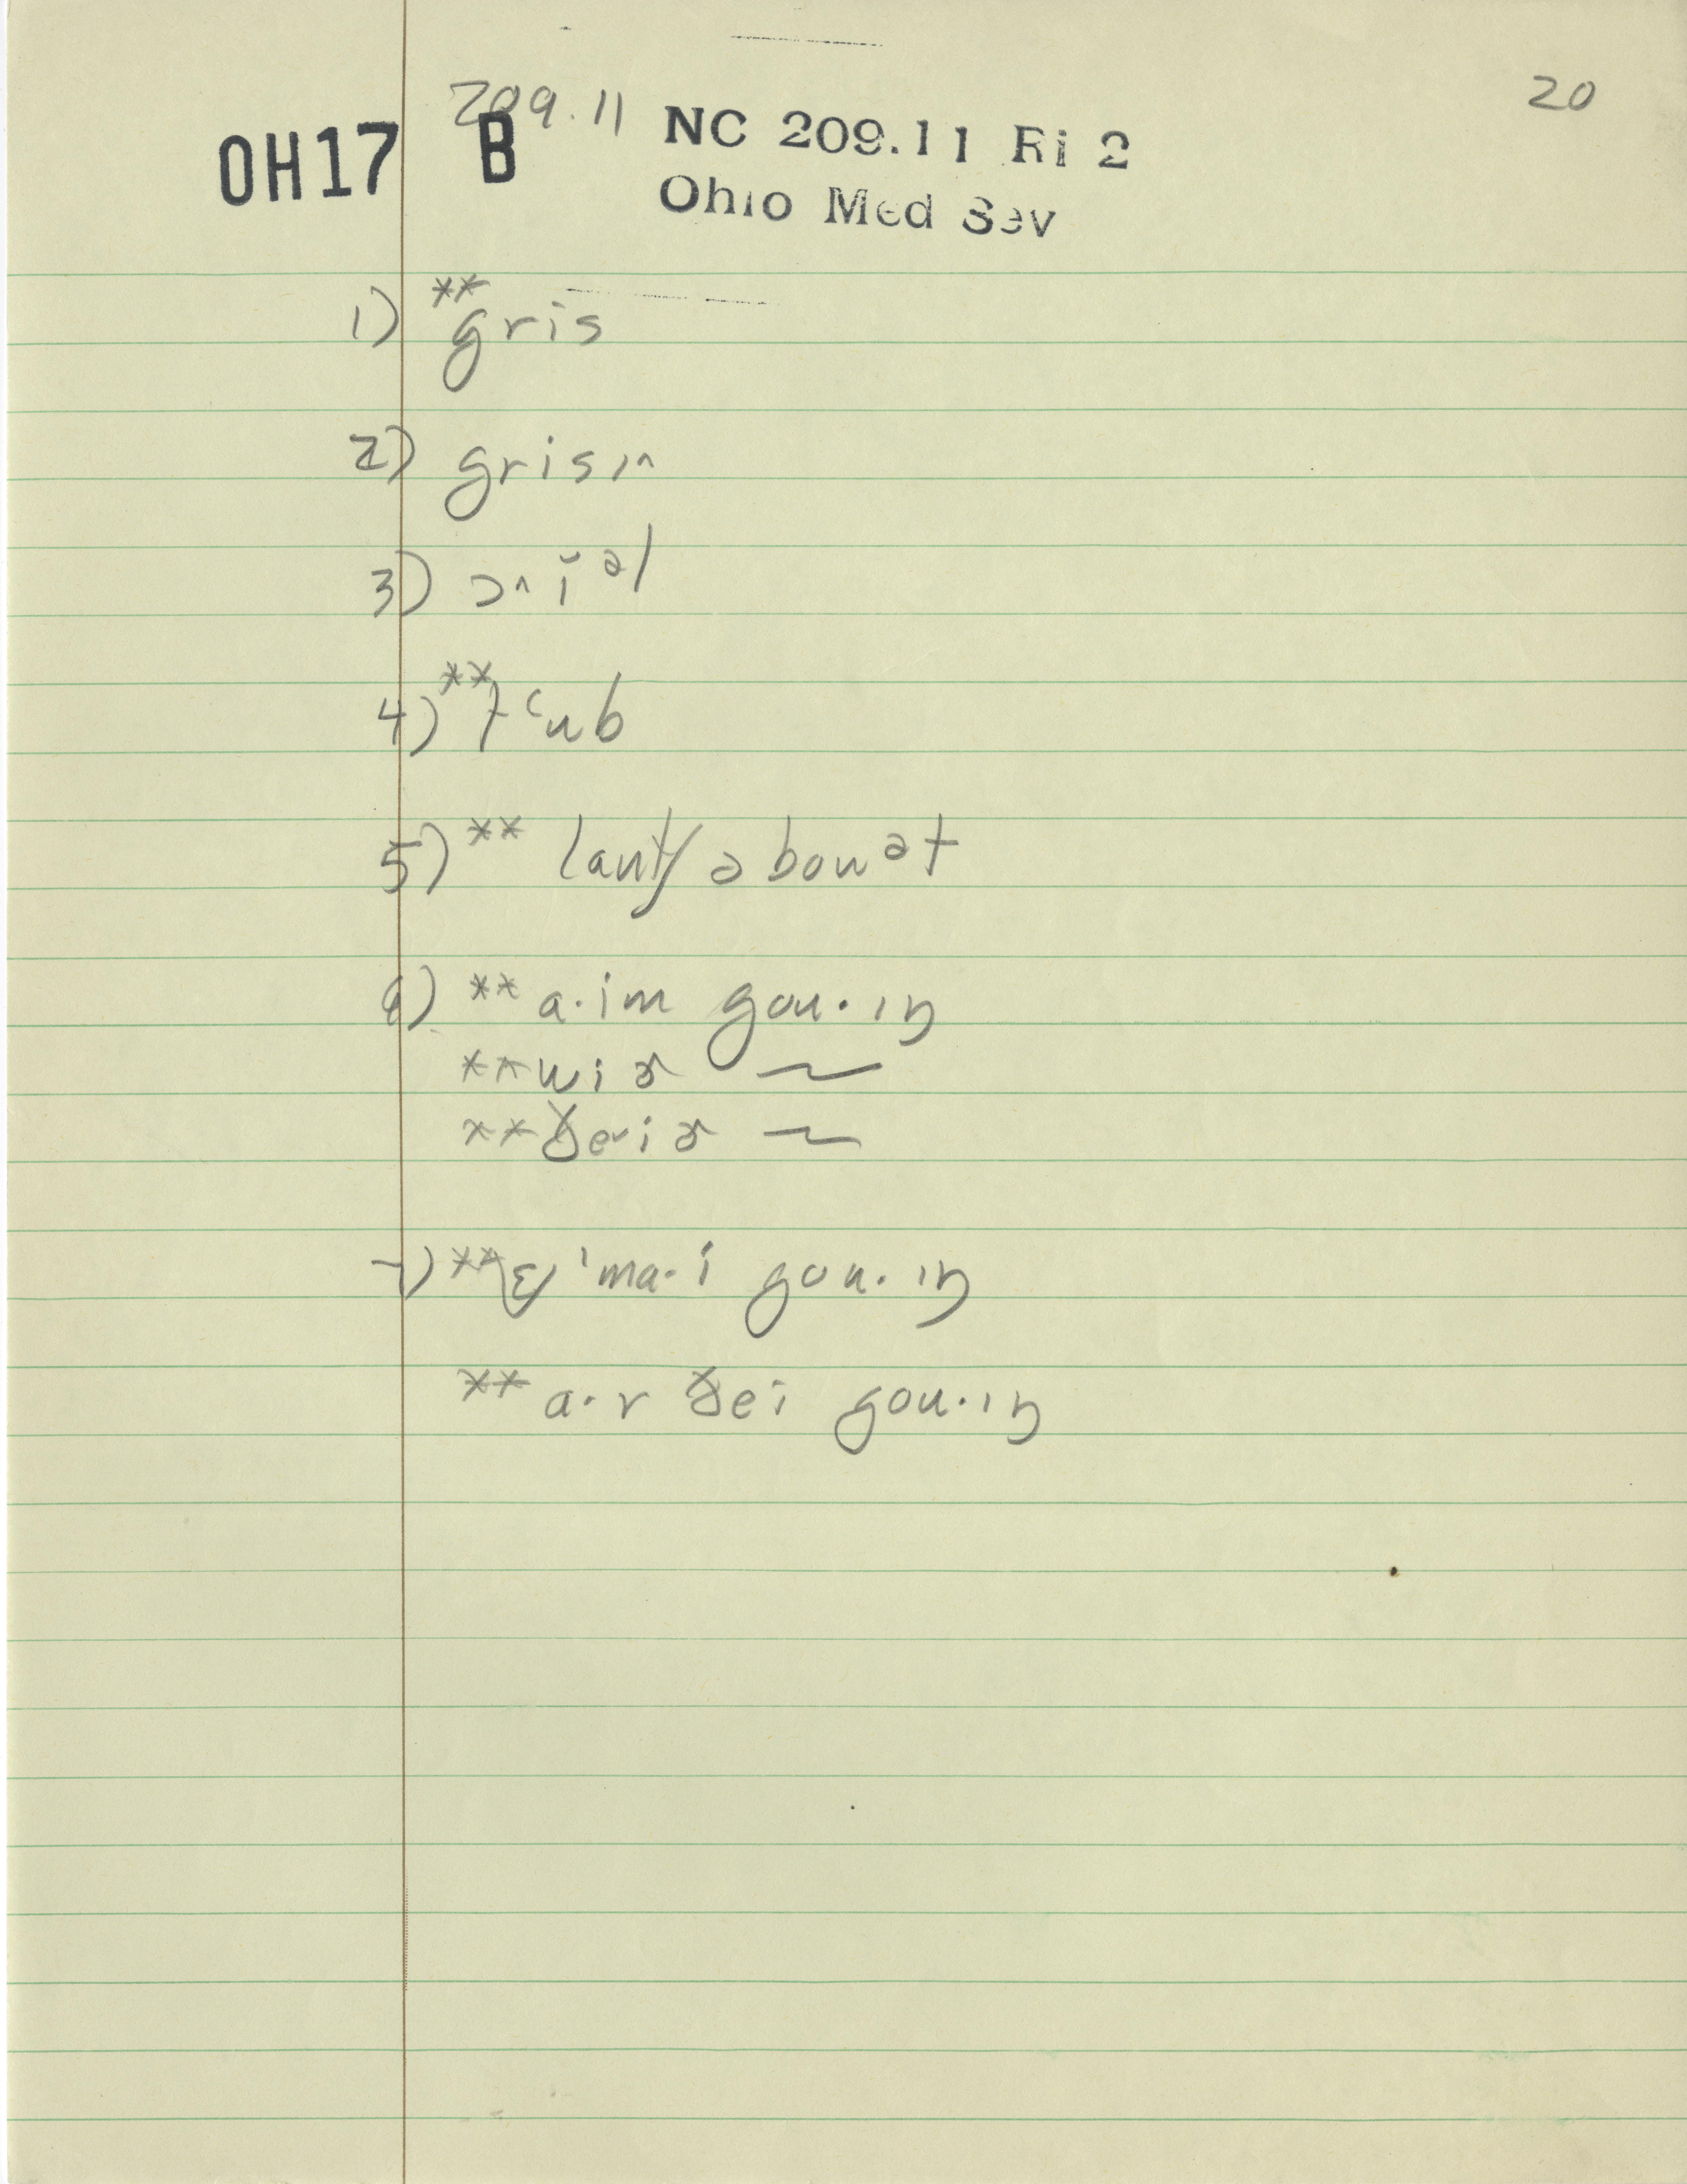 209.11
20
OH17 B
NC 209.11 Ri 2
Ohio Med Sev
1) **gris
2) grisɪn
3)
4) **tʻub
5) ** lantʃ ə bouət
6) ** a·im gou·ɪŋ
**wiɚ ~
**ðeiɚ ~
7) ** ˈma·i gou·ɪŋ
** a·r ðei gou·ɪŋ